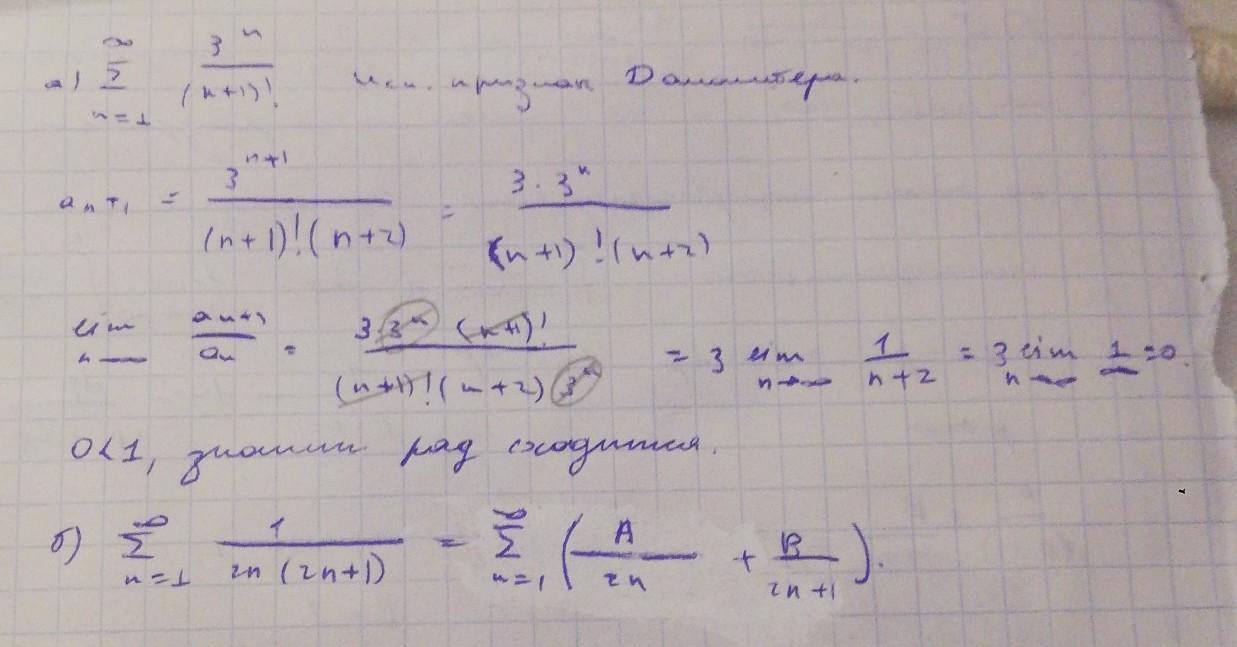 а) ∞ Σ n=1 3^n / (n+1)! Исп. признак Даламбера.
a_n+1 = 3^(n+1) / (n+1)!(n+2) = 3·3^n / (n+1)!(n+2)
lim n→∞ a_n+1 / a_n = 3·3^n (n+1)! / (n+1)!(n+2) 3^n = 3 lim n→∞ 1 / n+2 = 3 lim n→∞ 1 / ∞ = 0.
0<1, значит ряд сходится.
б) ∞ Σ n=1 1 / 2n(2n+1) = ∞ Σ n=1 (A / 2n + B / 2n+1).